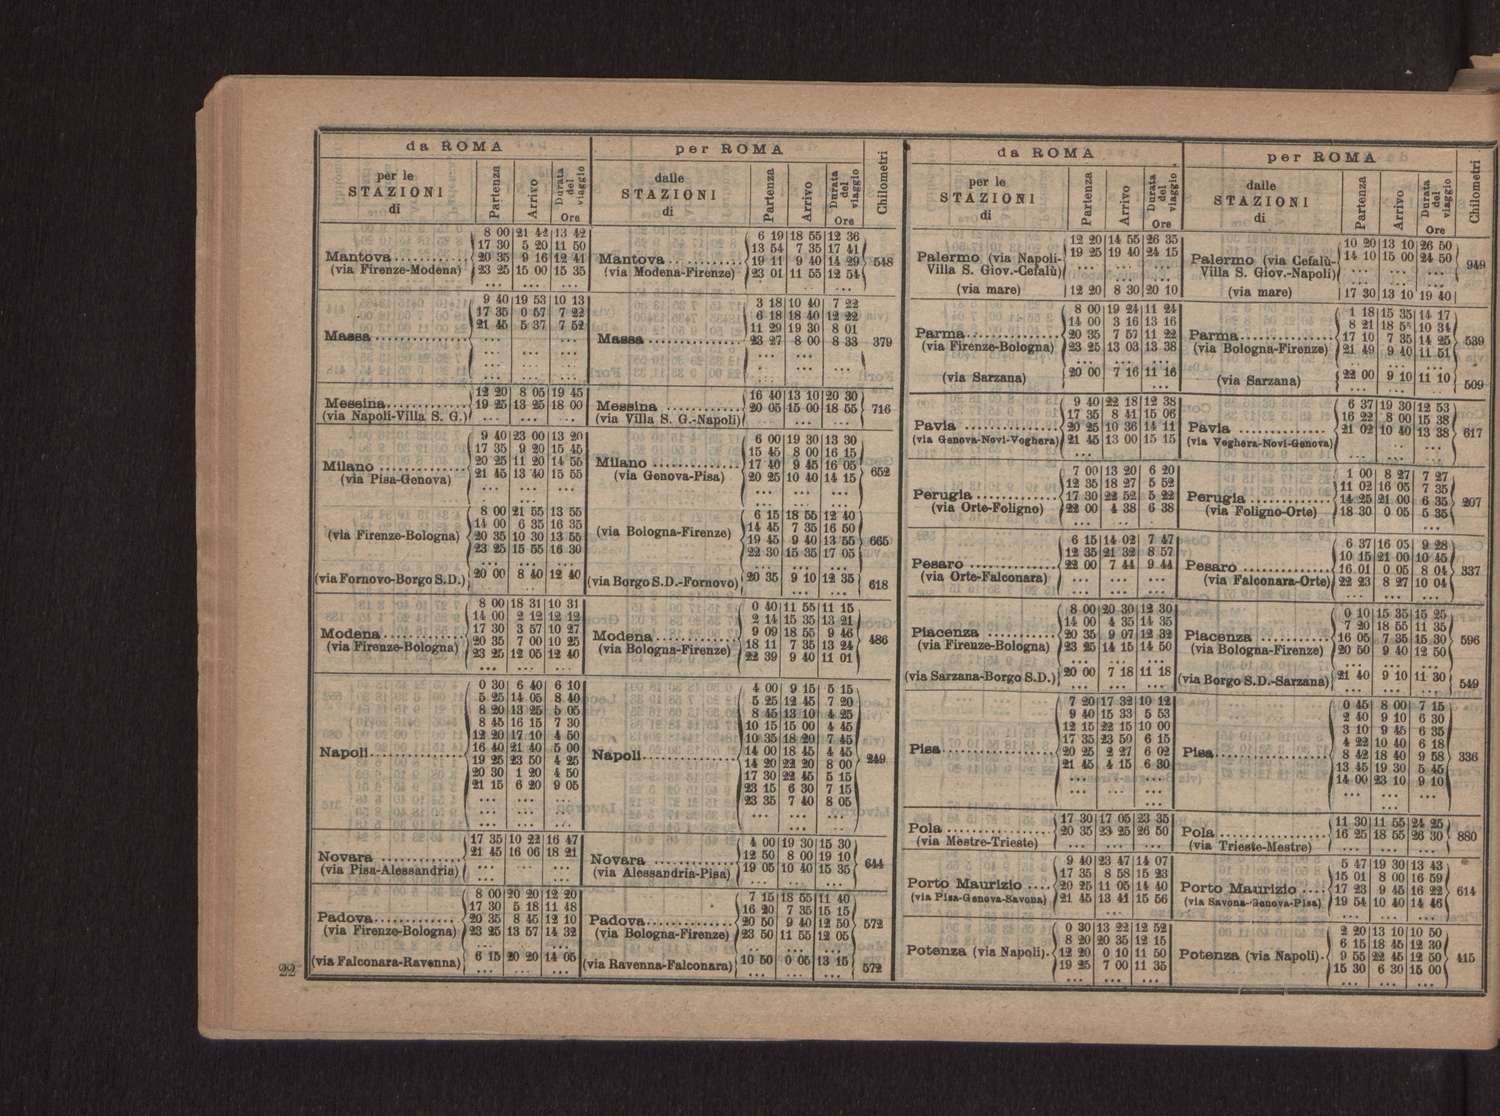 da ROMA
per le STAZIONI di | Partenza | Arrivo | Durata del viaggio Ore
Mantova (via Firenze-Modena)
8 00 | 21 42 | 13 42
17 30 | 5 20 | 11 50
20 35 | 9 16 | 12 41
23 25 | 15 00 | 15 35
Massa
9 40 | 19 53 | 10 13
17 35 | 0 57 | 7 22
21 45 | 5 37 | 7 52
Messina (via Napoli-Villa S. G.)
12 20 | 8 05 | 19 45
19 25 | 13 25 | 18 00
Milano (via Pisa-Genova)
9 40 | 23 00 | 13 20
17 35 | 9 20 | 15 45
20 25 | 11 20 | 14 55
21 45 | 13 40 | 15 55
(via Firenze-Bologna)
8 00 | 21 55 | 13 55
14 00 | 6 35 | 16 35
20 35 | 10 30 | 13 55
23 25 | 15 55 | 16 30
(via Fornovo-Borgo S.D.)
20 00 | 8 40 | 12 40
Modena (via Firenze-Bologna)
8 00 | 18 31 | 10 31
14 00 | 2 12 | 12 12
17 30 | 3 57 | 10 27
20 35 | 7 00 | 10 25
23 25 | 12 05 | 12 40
Napoli
0 30 | 6 40 | 6 10
5 25 | 14 05 | 8 40
8 20 | 13 25 | 5 05
8 45 | 16 15 | 7 30
12 20 | 17 10 | 4 50
16 40 | 21 40 | 5 00
19 25 | 23 50 | 4 25
20 30 | 1 20 | 4 50
21 15 | 6 20 | 9 05
Novara (via Pisa-Alessandria)
17 35 | 10 22 | 16 47
21 45 | 16 06 | 18 21
Padova (via Firenze-Bologna)
8 00 | 20 20 | 12 20
17 30 | 5 18 | 11 48
20 35 | 8 45 | 12 10
23 25 | 13 57 | 14 32
(via Falconara-Ravenna)
6 15 | 20 20 | 14 05
22
per ROMA
dalle STAZIONI di | Partenza | Arrivo | Durata del viaggio Ore | Chilometri
Mantova (via Modena-Firenze) 548
6 19 | 18 55 | 12 36
13 54 | 7 35 | 17 41
19 11 | 9 40 | 14 29
23 01 | 11 55 | 12 54
Massa 379
3 18 | 10 40 | 7 22
6 18 | 18 40 | 12 22
11 29 | 19 30 | 8 01
23 27 | 8 00 | 8 33
Messina (via Villa S. G.-Napoli) 716
16 40 | 13 10 | 20 30
20 05 | 15 00 | 18 55
Milano (via Genova-Pisa) 652
6 00 | 19 30 | 13 30
15 45 | 8 00 | 16 15
17 40 | 9 45 | 16 05
20 25 | 10 40 | 14 15
(via Bologna-Firenze) 665
6 15 | 18 55 | 12 40
14 45 | 7 35 | 16 50
19 45 | 9 40 | 13 55
22 30 | 15 35 | 17 05
(via Borgo S.D.-Fornovo) 618
20 35 | 9 10 | 12 35
Modena (via Bologna-Firenze) 486
0 40 | 11 55 | 11 15
2 14 | 15 35 | 13 21
9 09 | 18 55 | 9 46
18 11 | 7 35 | 13 24
22 39 | 9 40 | 11 01
Napoli 249
4 00 | 9 15 | 5 15
5 25 | 12 45 | 7 20
8 45 | 13 10 | 4 25
10 15 | 15 00 | 4 45
10 35 | 18 20 | 7 45
14 00 | 18 45 | 4 45
14 20 | 22 20 | 8 00
17 30 | 22 45 | 5 15
23 15 | 6 30 | 7 15
23 35 | 7 40 | 8 05
Novara (via Alessandria-Pisa) 644
4 00 | 19 30 | 15 30
12 50 | 8 00 | 19 10
19 05 | 10 40 | 15 35
Padova (via Bologna-Firenze) 572
7 15 | 18 55 | 11 40
16 20 | 7 35 | 15 15
20 50 | 9 40 | 12 50
23 50 | 11 55 | 12 05
(via Ravenna-Falconara) 572
10 50 | 0 05 | 13 15
da ROMA
per le STAZIONI di | Partenza | Arrivo | Durata del viaggio Ore
Palermo (via Napoli-Villa S. Giov.-Cefalù)
12 20 | 14 55 | 26 35
19 25 | 19 40 | 24 15
(via mare)
12 20 | 8 30 | 20 10
Parma (via Firenze-Bologna)
8 00 | 19 24 | 11 24
14 00 | 3 16 | 13 16
20 35 | 7 57 | 11 22
23 25 | 13 03 | 13 38
(via Sarzana)
20 00 | 7 16 | 11 16
Pavia (via Genova-Novi-Voghera)
9 40 | 22 18 | 12 38
17 35 | 8 41 | 15 06
20 25 | 10 36 | 14 11
21 45 | 13 00 | 15 15
Perugia (via Orte-Foligno)
7 00 | 13 20 | 6 20
12 35 | 18 27 | 5 52
17 30 | 22 52 | 5 22
22 00 | 4 38 | 6 38
Pesaro (via Orte-Falconara)
6 15 | 14 02 | 7 47
12 35 | 21 32 | 8 57
22 00 | 7 44 | 9 44
Piacenza (via Firenze-Bologna)
8 00 | 20 30 | 12 30
14 00 | 4 35 | 14 35
20 35 | 9 07 | 12 32
23 25 | 14 15 | 14 50
(via Sarzana-Borgo S.D.)
20 00 | 7 18 | 11 18
Pisa
7 20 | 17 32 | 10 12
9 40 | 15 33 | 5 53
12 15 | 22 15 | 10 00
17 35 | 23 50 | 6 15
20 25 | 2 27 | 6 02
21 45 | 4 15 | 6 30
Pola (via Mestre-Trieste)
17 30 | 17 05 | 23 35
20 35 | 23 25 | 26 50
Porto Maurizio (via Pisa-Genova-Savona)
9 40 | 23 47 | 14 07
17 35 | 8 58 | 15 23
20 25 | 11 05 | 14 40
21 45 | 13 41 | 15 56
Potenza (via Napoli)
0 30 | 13 22 | 12 52
8 20 | 20 35 | 12 15
12 20 | 0 10 | 11 50
19 25 | 7 00 | 11 35
per ROMA
dalle STAZIONI di | Partenza | Arrivo | Durata del viaggio Ore | Chilometri
Palermo (via Cefalù-Villa S. Giov.-Napoli) 949
10 20 | 13 10 | 26 50
14 10 | 15 00 | 24 50
(via mare)
17 30 | 13 10 | 19 40
Parma (via Bologna-Firenze) 539
1 18 | 15 35 | 14 17
8 21 | 18 5 | 10 34
17 10 | 7 35 | 14 25
21 49 | 9 40 | 11 51
(via Sarzana) 509
22 00 | 9 10 | 11 10
Pavia (via Voghera-Novi-Genova) 617
6 37 | 19 30 | 12 53
16 22 | 8 00 | 15 38
21 02 | 10 40 | 13 38
Perugia (via Foligno-Orte) 207
1 00 | 8 27 | 7 27
11 02 | 16 05 | 7 35
14 25 | 21 00 | 6 35
18 30 | 0 05 | 5 35
Pesaro (via Falconara-Orte) 337
6 37 | 16 05 | 9 28
10 15 | 21 00 | 10 45
16 01 | 0 05 | 8 04
22 23 | 8 27 | 10 04
Piacenza (via Bologna-Firenze) 596
0 10 | 15 35 | 15 25
7 20 | 18 55 | 11 35
16 05 | 7 35 | 15 30
20 50 | 9 40 | 12 50
(via Borgo S.D.-Sarzana) 549
21 40 | 9 10 | 11 30
Pisa 336
0 45 | 8 00 | 7 15
2 40 | 9 10 | 6 30
3 10 | 9 45 | 6 35
4 22 | 10 40 | 6 18
8 42 | 18 40 | 9 58
13 45 | 19 30 | 5 45
14 00 | 23 10 | 9 10
Pola (via Trieste-Mestre) 880
11 30 | 11 55 | 24 25
16 25 | 18 55 | 26 30
Porto Maurizio (via Savona-Genova-Pisa) 614
5 47 | 19 30 | 13 43
15 01 | 8 00 | 16 59
17 23 | 9 45 | 16 22
19 54 | 10 40 | 14 46
Potenza (via Napoli) 415
2 20 | 13 10 | 10 50
6 15 | 18 45 | 12 30
9 55 | 22 45 | 12 50
15 30 | 6 30 | 15 00